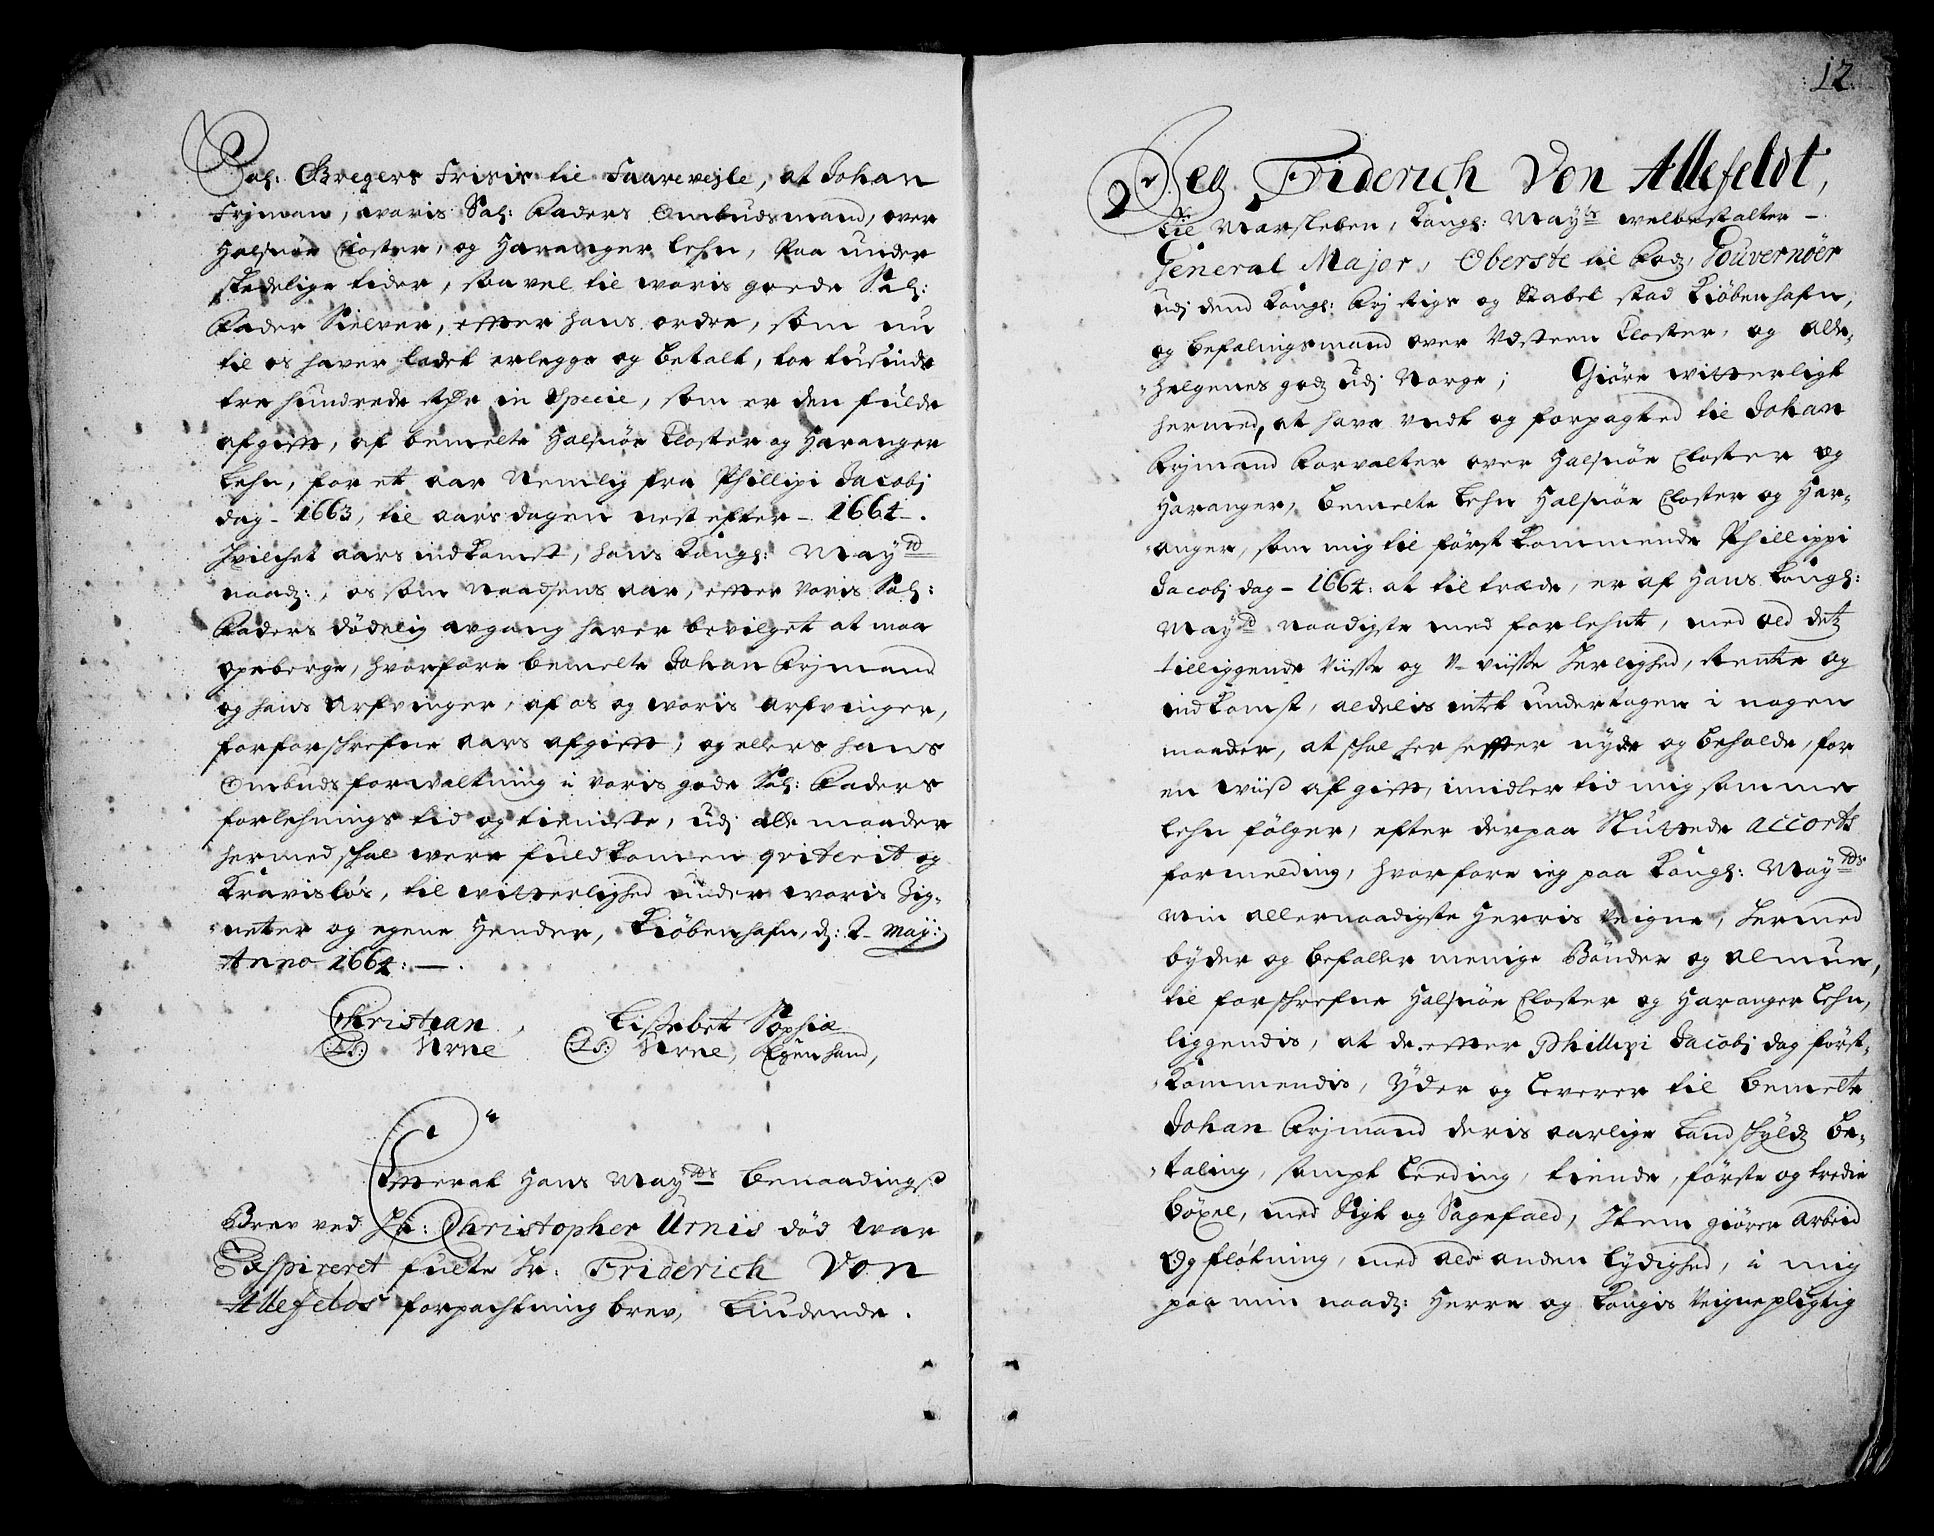 Sal: Gregers Frisis til Faareveyle, at Johan
Fryman, woris Sal: Faders Ombudsmand, over
Halsnøe Closter, og Haranger Lehn, Paa under
skedelige tider, saavel til woris goede Sal:
Fader Sielver, effter hans ordre, som nu
til os haver ladet erlegge og betalt, toe tusinde
tre hundrede rdr in Specie, som er den fulde
afgifft, af bemelte Halsnøe Closter og Haranger
Lehn, for et aar Nemlig fra Phillipi Jacobj
dag - 1663, til aarsdagen nest efter - 1664 - .
Hvilchet aars indkomst, hans Kongl: Maytd
naadg:, os som Naadsens aar, effter voris Sal:
Faders dødelig avgang haver bevilget at maa
opeberge, hvorfore bemelte Johan Frymand
og hans Arfvinger, af os og woris Arfvinger,
for forschrefne aars afgifft, og ellers hans
Ombuds forwaltning i voris gode Sal: Faders
forlehnings tid og tieniste, udj alle maader
hermed schal were fuldkomen qviterit og
Kravisløs, til witterlighed under woris Zig-
neter og egene Hender, Kiøbenhafn, d: 2 - Maÿ:
Anno 1664: - .
Christian Lissebet Sophia
(L:S:) Urne (L:S:) Urne, Egen hand,
Effterat Hans Maytds benaadings
Brev ved Hr: Christopher Urnis død war
Exspireret fulte Hr: Friderich Von
Allefeldts forpachtning brev, Liudende.
12.
Jeg Friderich Von Allefeldt,
til Marsleben, Kongl: Mayts welbestalter -
General Major, Oberste til Fodz, Gouvernöer
udj dend Kongl: Frj Rigs og Stabel stad Kiøbenhafn,
og befalingsmand over Udsteen Closter, og Alle-
helgenes godz udj Norge; Giøre witterligt
hermed, at have undt og forpagted til Johan
Frymand Forvalter over Halsnøe Closter og
Haranger, bemelte Lehn Halsnøe Closter og Har-
anger, som mig til først kommende Phillippi
Jacobj dag - 1664: at til træde, er af Hans Kongl:
Maytd naadigste med forlehnt, med ald detz
tilliggende Viisse og U-viisse Herlighed, Rente og
indkomst, aldelis intet undertagen i nogen
maader, at schal her heffter nyde og beholde, for
en wiiß afgifft, imidler tid mig samme
Lehn følger, efter derpaa Sluttede Accorts
formelding, hvorfore ieg paa Kongl: Maytds
min allernaadigste Herris Veigne, hermed
byder og befaller menige Bønder og Almue,
til forschrefne Halsnøe Closter og Haranger Lehn,
liggendis, at de effter Phillipi Jacobj dag først-
kommendis, Yder og Leverer til bemelte
Johan Frymand deris aarlige Landschyldz be-
taling, sampt Leeding, tiende, første og tredie
bøxel, med Sigt og Sagefald, Item giører Arbeid
og fløtning, med ald anden Lydighed, i mig
paa min naadg: Herre og Kongis Veigne pligtig